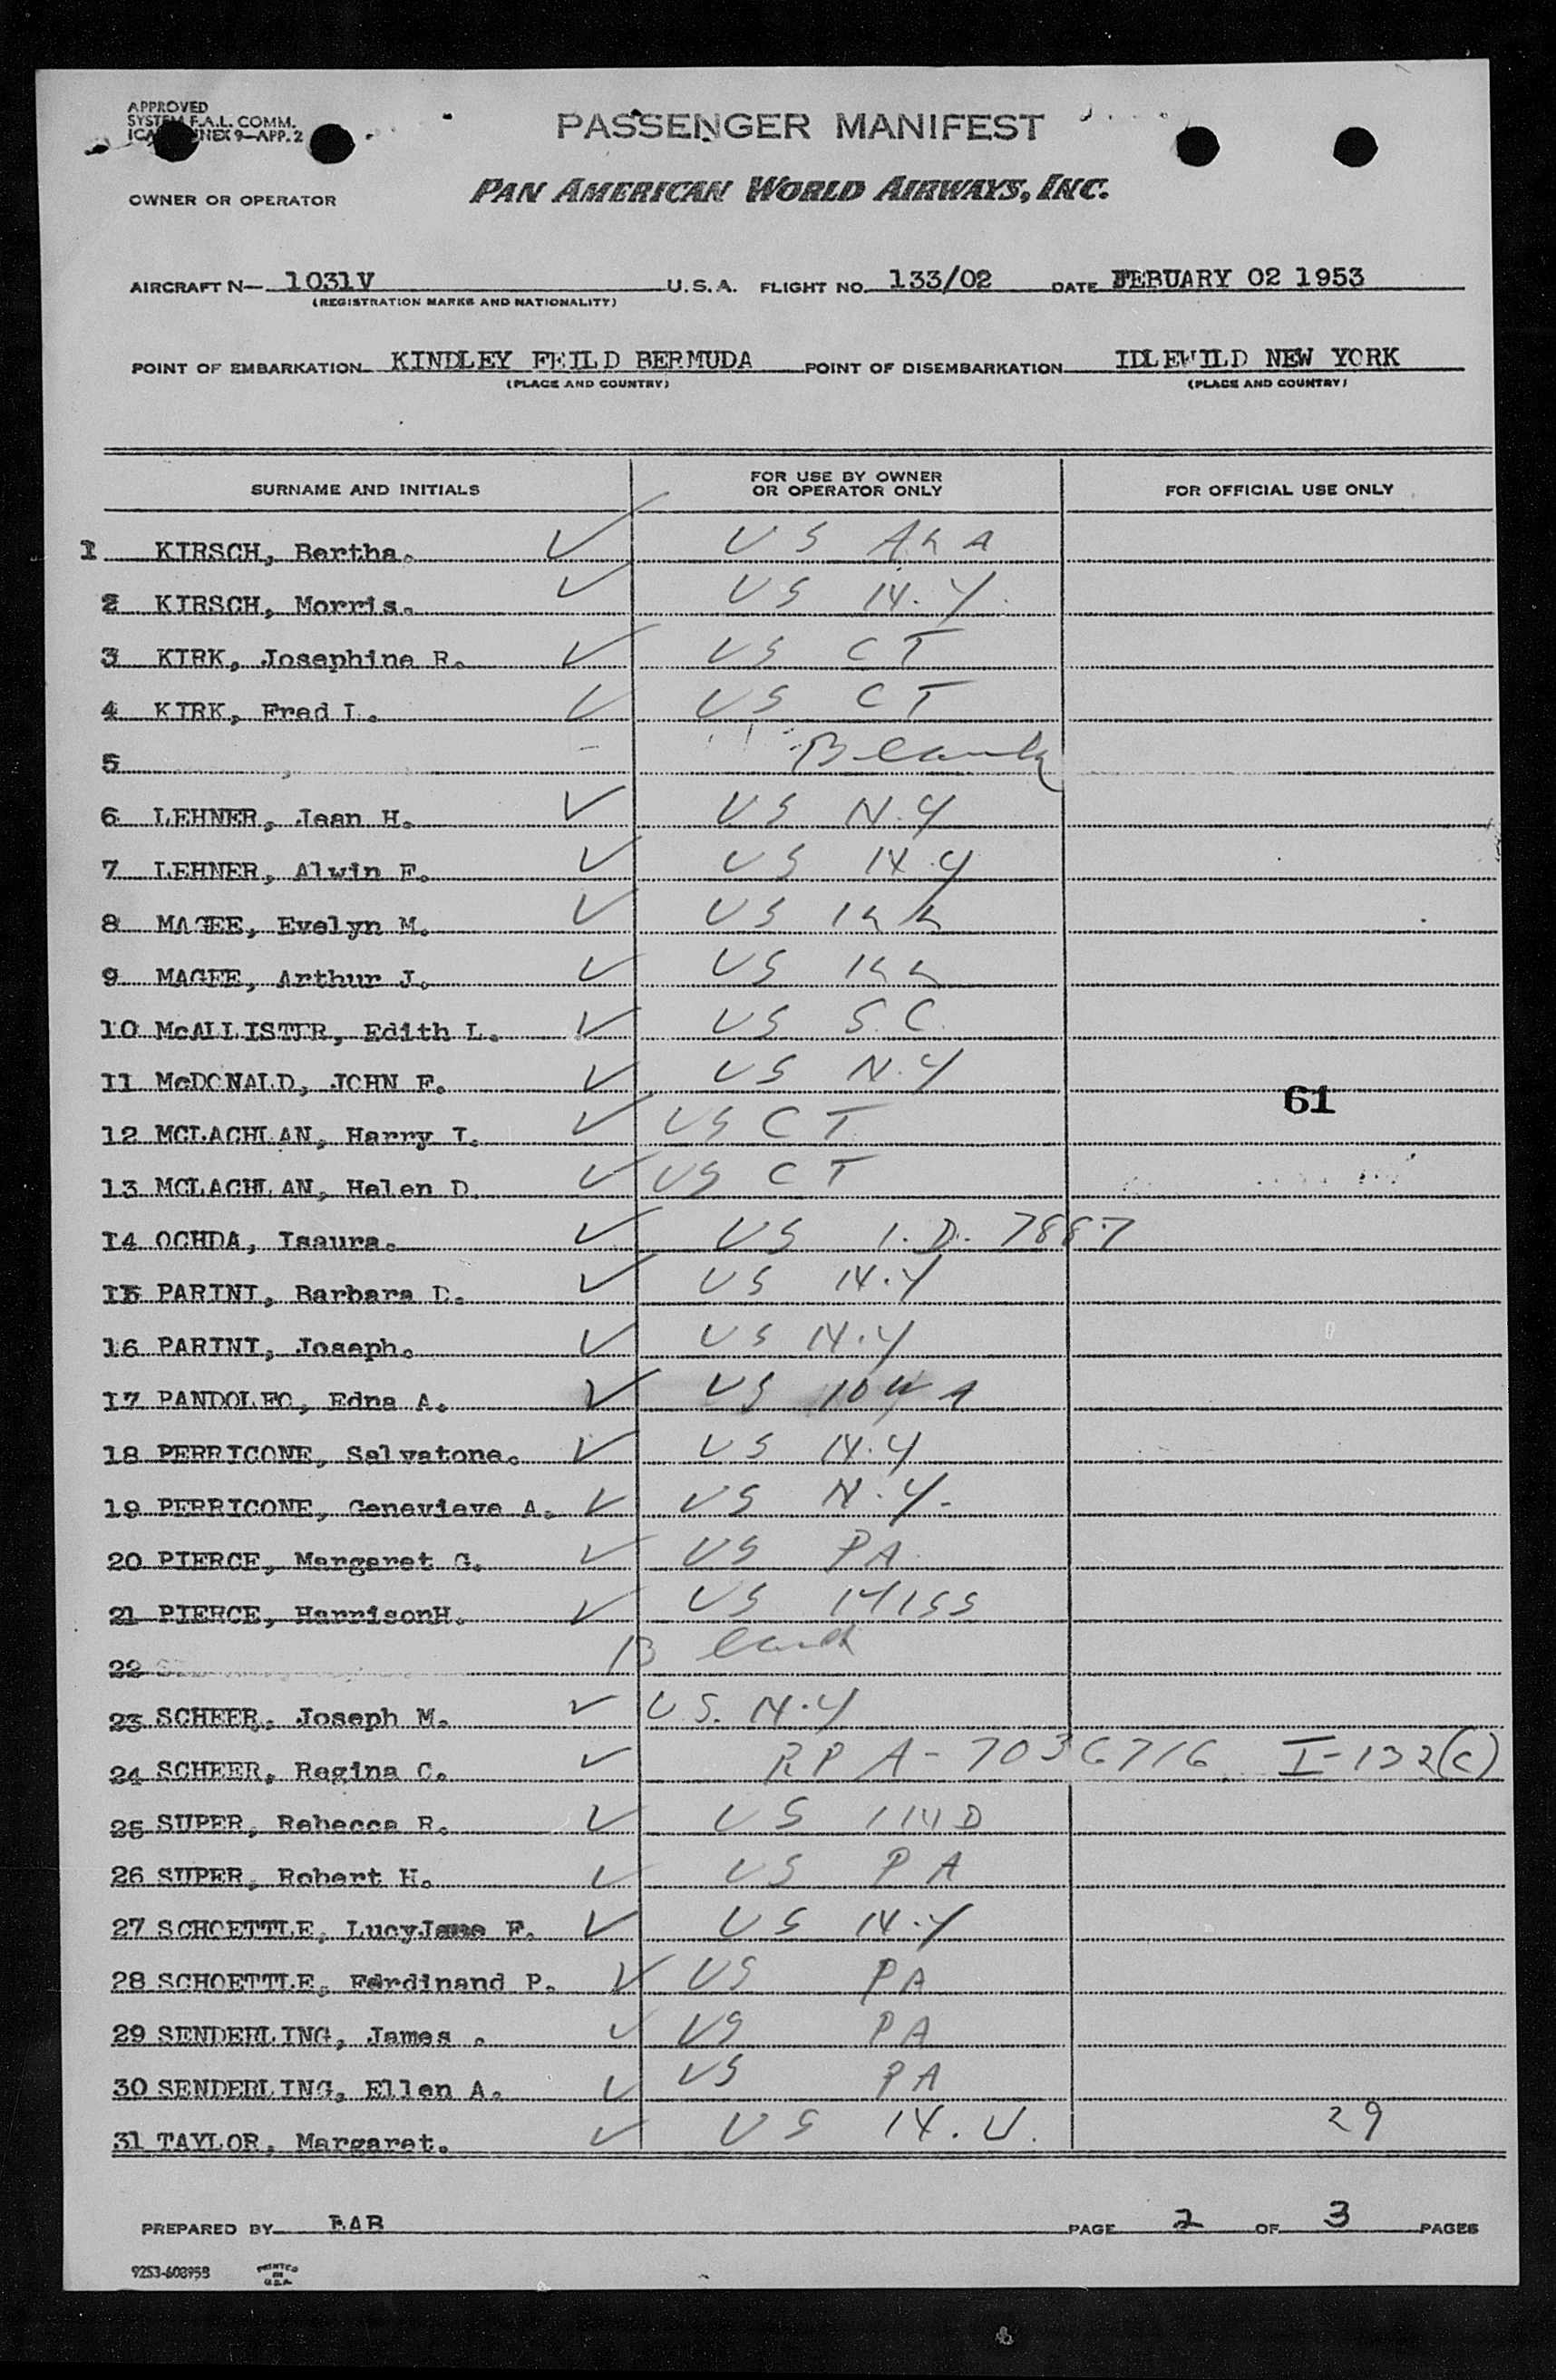 APPROVED
SYSTEM F.A.L. COMM.
ICAO ANNEX 9—APP. 2
PASSENGER MANIFEST
OWNER OR OPERATOR PAN AMERICAN WORLD AIRWAYS, INC.
AIRCRAFT N— 1031V U.S.A. FLIGHT NO. 133/02 DATE FEBUARY 02 1953
(REGISTRATION MARKS AND NATIONALITY)
POINT OF EMBARKATION KINDLEY FEILD BERMUDA POINT OF DISEMBARKATION IDLEWILD NEW YORK
(PLACE AND COUNTRY) (PLACE AND COUNTRY)
SURNAME AND INITIALS FOR USE BY OWNER OR OPERATOR ONLY FOR OFFICIAL USE ONLY
1 KIRSCH, Bertha. ✓ US
2 KIRSCH, Morris. ✓ US N.Y.
3 KIRK, Josephine R. ✓ US CT
4 KIRK, Fred L. ✓ US CT
5 , - Blank
6 LEHNER, Jean H. ✓ US N.Y
7 LEHNER, Alwin F. ✓ US N.Y
8 MAGEE, Evelyn M. ✓ US
9 MAGEE, Arthur J. ✓ US
10 McALLISTER, Edith L. ✓ US S.C.
11 McDONALD, JOHN F. ✓ US N.Y
61
12 MCLACHLAN, Harry I. ✓ US CT
13 MCLACHLAN, Helen D. ✓ US CT
14 OCHDA, Isaura. ✓ US I.D. 7887
15 PARINI, Barbara D. ✓ US N.Y
16 PARINI, Joseph. ✓ US N.Y
17 PANDOLFO, Edna A. ✓ US
18 PERRICONE, Salvatone. ✓ US N.Y
19 PERRICONE, Genevieve A. ✓ US N.Y-
20 PIERCE, Margaret G. ✓ US PA
21 PIERCE, HarrisonH. ✓ US MISS
22 Blank
23 SCHEER, Joseph M. ✓ US. N.Y
24 SCHEER, Regina C. ✓ RP A-7036716 I-132(c)
25 SUPER, Rebecca R. ✓ US IND
26 SUPER, Robert H. ✓ US PA
27 SCHOETTLE, LucyJane F. ✓ US N.Y
28 SCHOETTLE, Ferdinand P. ✓ US PA
29 SENDERLING, James . ✓ US PA
30 SENDERLING, Ellen A. ✓ US PA
31 TAYLOR, Margaret. ✓ US 29
PREPARED BY PAGE 2 OF 3 PAGES
9253-608958 PRINTED IN U.S.A.